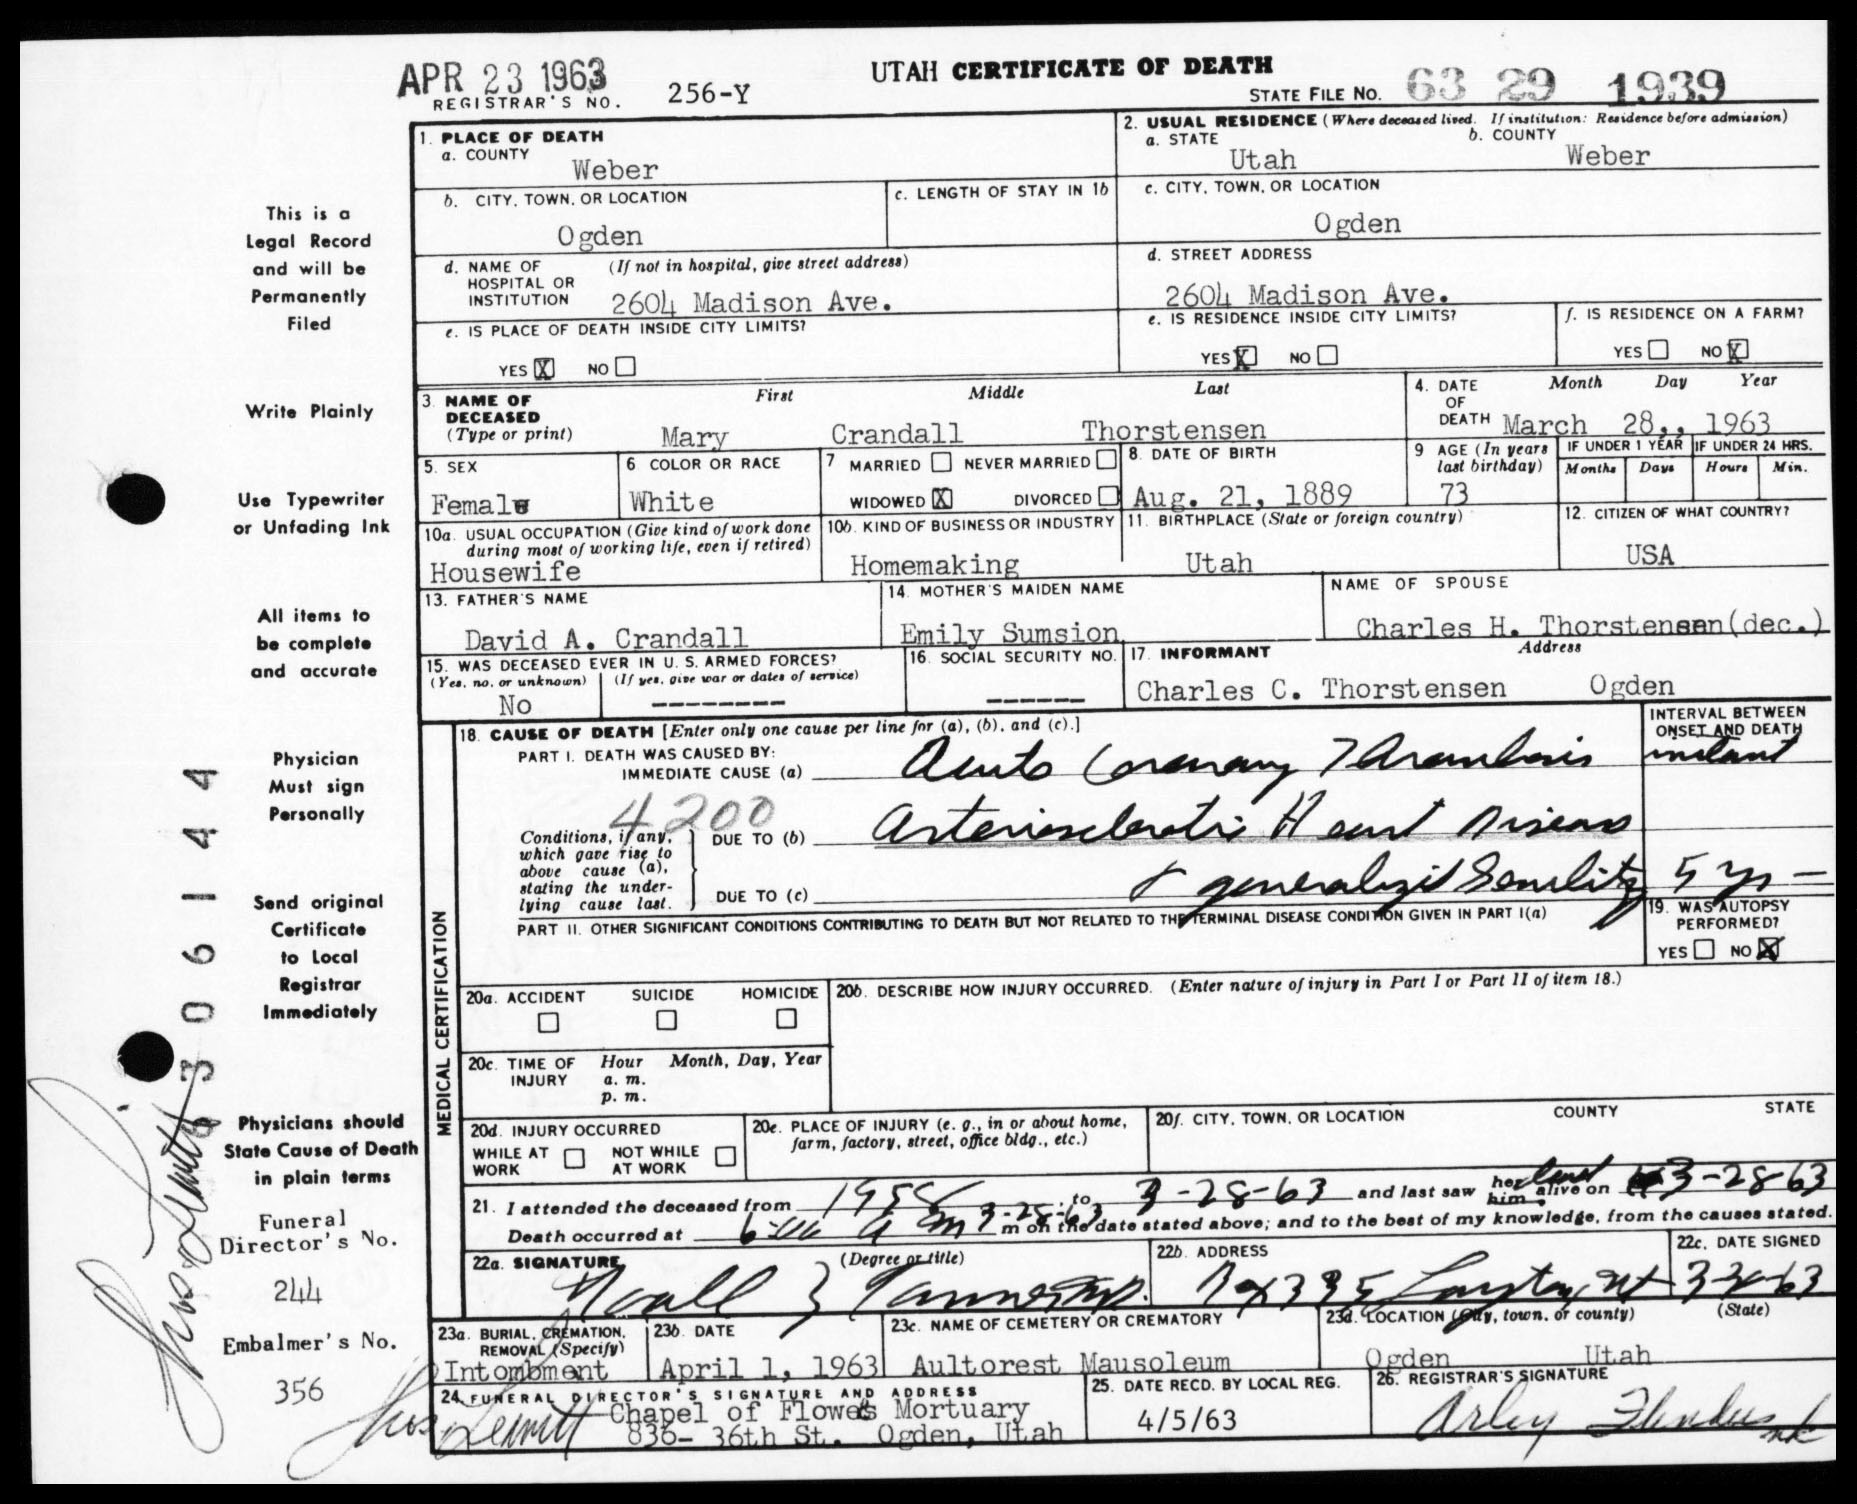 APR 23 1963
REGISTRAR'S NO. 256-Y
UTAH CERTIFICATE OF DEATH
STATE FILE NO. 63 29 1939
This is a
Legal Record
and will be
Permanently
Filed
Write Plainly
Use Typewriter
or Unfading Ink
All items to
be complete
and accurate
Physician
Must sign
Personally
Send original
Certificate
to Local
Registrar
Immediately
Physicians should
State Cause of Death
in plain terms
Funeral
Director's No.
244
Embalmer's No.
356
63061444
1. PLACE OF DEATH
a. COUNTY
Weber
b. CITY, TOWN, OR LOCATION
Ogden
c. LENGTH OF STAY IN 1b
d. NAME OF (If not in hospital, give street address)
HOSPITAL OR
INSTITUTION 2604 Madison Ave.
e. IS PLACE OF DEATH INSIDE CITY LIMITS?
YES X NO
2. USUAL RESIDENCE (Where deceased lived. If institution: Residence before admission)
a. STATE b. COUNTY
Utah Weber
c. CITY, TOWN, OR LOCATION
Ogden
d. STREET ADDRESS
2604 Madison Ave.
e. IS RESIDENCE INSIDE CITY LIMITS?
YES X NO
f. IS RESIDENCE ON A FARM?
YES NO X
3. NAME OF First Middle Last
DECEASED
(Type or print) Mary Crandall Thorstensen
4. DATE Month Day Year
OF
DEATH March 28,, 1963
5. SEX
Female
6 COLOR OR RACE
White
7 MARRIED NEVER MARRIED
WIDOWED X DIVORCED
8. DATE OF BIRTH
Aug. 21, 1889
9 AGE (In years
last birthday)
73
IF UNDER 1 YEAR IF UNDER 24 HRS.
Months Days Hours Min.
10a. USUAL OCCUPATION (Give kind of work done
during most of working life, even if retired)
Housewife
10b. KIND OF BUSINESS OR INDUSTRY
Homemaking
11. BIRTHPLACE (State or foreign country)
Utah
12. CITIZEN OF WHAT COUNTRY?
USA
13. FATHER'S NAME
David A. Crandall
14. MOTHER'S MAIDEN NAME
Emily Sumsion
NAME OF SPOUSE
Charles H. Thorstensen(dec.)
15. WAS DECEASED EVER IN U. S. ARMED FORCES?
(Yes, no, or unknown) (If yes, give war or dates of service)
No --------
16. SOCIAL SECURITY NO.
------
17. INFORMANT Address
Charles C. Thorstensen Ogden
MEDICAL CERTIFICATION
18. CAUSE OF DEATH [Enter only one cause per line for (a), (b), and (c).]
PART I. DEATH WAS CAUSED BY:
IMMEDIATE CAUSE (a) Acute Coronary Thrombosis
INTERVAL BETWEEN
ONSET AND DEATH
instant
4200
Conditions, if any,
which gave rise to
above cause (a),
stating the under-
lying cause last.
DUE TO (b) Arteriosclerotic Heart Disease
DUE TO (c) & generalized Senility 5 yrs -
PART II. OTHER SIGNIFICANT CONDITIONS CONTRIBUTING TO DEATH BUT NOT RELATED TO THE TERMINAL DISEASE CONDITION GIVEN IN PART I(a)
19. WAS AUTOPSY
PERFORMED?
YES NO X
20a. ACCIDENT SUICIDE HOMICIDE
20b. DESCRIBE HOW INJURY OCCURRED. (Enter nature of injury in Part I or Part II of item 18.)
20c. TIME OF Hour Month, Day, Year
INJURY a. m.
p. m.
20d. INJURY OCCURRED
WHILE AT NOT WHILE
WORK AT WORK
20e. PLACE OF INJURY (e. g., in or about home,
farm, factory, street, office bldg., etc.)
20f. CITY, TOWN, OR LOCATION COUNTY STATE
21. I attended the deceased from 1958 to 3-28-63 and last saw her him alive on 3-28-63
Death occurred at A m 3-28-63 m on the date stated above; and to the best of my knowledge, from the causes stated.
22a. SIGNATURE (Degree or title)
Noall Z Tanner MD.
22b. ADDRESS
Box 335 Layton, Ut
22c. DATE SIGNED
3-30-63
23a. BURIAL, CREMATION,
REMOVAL (Specify)
Intombment
23b. DATE
April 1, 1963
23c. NAME OF CEMETERY OR CREMATORY
Aultorest Mausoleum
23d. LOCATION (City, town, or county) (State)
Ogden Utah
24. FUNERAL DIRECTOR'S SIGNATURE AND ADDRESS
Chapel of Flowers Mortuary
836- 36th St. Ogden, Utah
25. DATE RECD. BY LOCAL REG.
4/5/63
26. REGISTRAR'S SIGNATURE
Arley Flinders